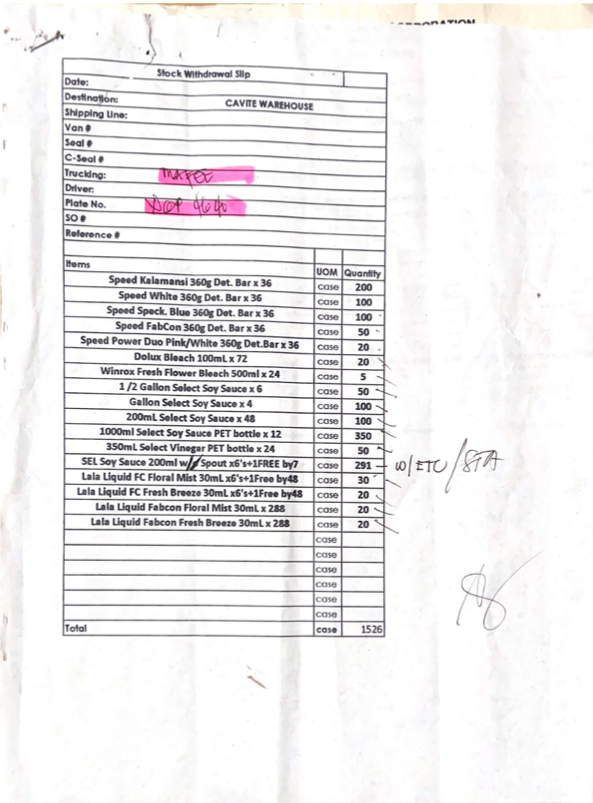 Stock Withdrawal Slip
Date:
Destination: CAVITE WAREHOUSE
Shipping Line:
Van #
Seal #
C-Seal #
Trucking:
Driver:
Plate No.
SO #
Reference #
Items UOM Quantity
Speed Kalamansi 360g Det. Bar x 36 case 200
Speed White 360g Det. Bar x 36 case 100
Speed Speck. Blue 360g Det. Bar x 36 case 100
Speed FabCon 360g Det. Bar x 36 case 50
Speed Power Duo Pink/White 360g Det.Bar x 36 case 20
Dolux Bleach 100mL x 72 case 20
Winrox Fresh Flower Bleach 500ml x 24 case 5
1 /2 Gallon Select Soy Sauce x 6 case 50
Gallon Select Soy Sauce x 4 case 100
200mL Select Soy Sauce x 48 case 100
1000ml Select Soy Sauce PET bottle x 12 case 350
350mL Select Vinegar PET bottle x 24 case 50
SEL Soy Sauce 200ml w/ Spout x6's+1FREE by7 case 291 - W/ETO/STA
Lala Liquid FC Floral Mist 30mL x6's+1Free by48 case 30
Lala Liquid FC Fresh Breeze 30mL x6's+1Free by48 case 20
Lala Liquid Fabcon Floral Mist 30mL x 288 case 20
Lala Liquid Fabcon Fresh Breeze 30mL x 288 case 20
case
case
case
case
case
case
Total case 1526